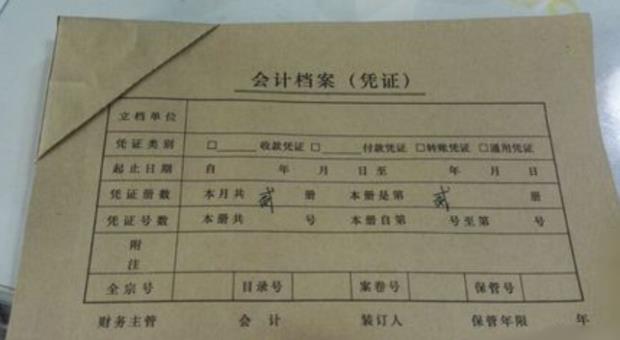 会计档案（凭证）
立档单位
凭证类别 □______收款凭证 □______付款凭证 □转账凭证 □通用凭证
起止日期 自 年 月 日至 年 月 日
凭证册数 本月共 贰 册 本册是第 贰 册
凭证号数 本册共 号 本册自第 号至第 号
附
注
全宗号 目录号 案卷号 保管号
财务主管 会计 装订人 保管年限 年